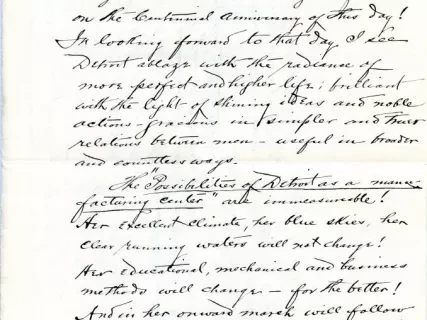 on the Centennial Anniversary of this day!
In looking forward to that day I see
Detroit ablaze with the radiance of
more perfect and higher life; brilliant
with the light of shining ideas and noble
actions - gracious in simpler and truer
relations between men - useful in broader
and countless ways.
The "Possibilities of Detroit as a manu-
facturing center" are immeasurable!
Her excellent climate, her blue skies, her
clear running waters will not change!
Her educational, mechanical and business
methods will change - for the better!
And in her onward march will follow